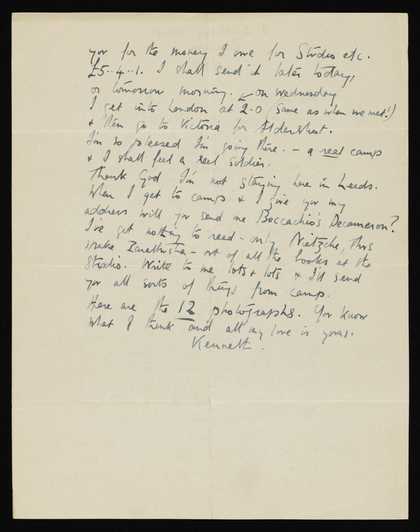 you for the money I owe for Studio etc.
£5..4..1. I shall send it later today,
or tomorrow morning. on Wednesday
I get into London at 2.0 (same as when we met!)
& then go to Victoria for Aldershot.
I'm so pleased I'm going there. – a real camp
& I shall feel a real soldier.
Thank God I'm not staying here in Leeds.
When I get to camp & I give you my
address will you send me Boccachio's Decameron?
I've got nothing to read – only Nietzche, Thus
spake Zarathustra – out of all the books at the
Studio. Write to me lots & lots & I'll send
you all sorts of things from camp.
Here are the 12 photographs. You know
what I think and all my love is yours.
Kenneth.